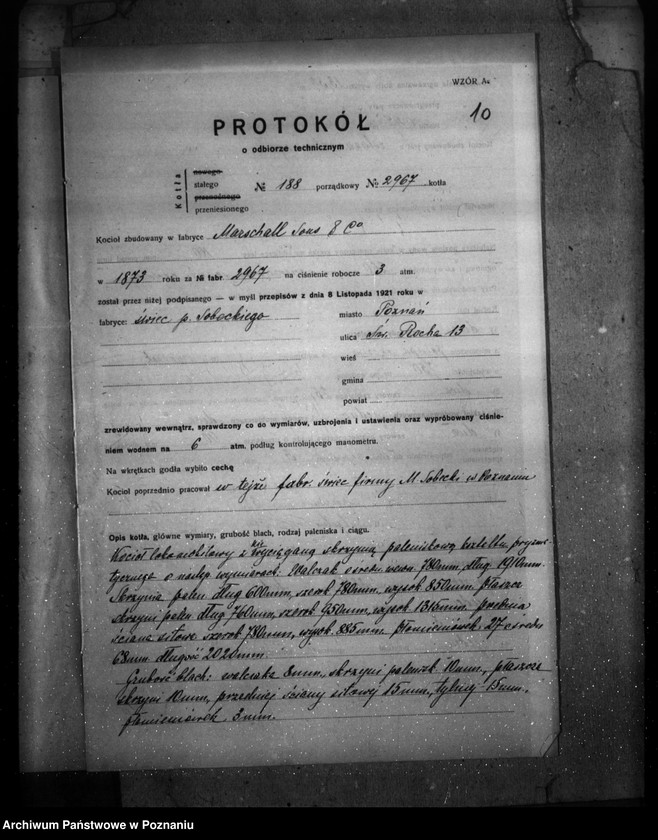 WZÓR A
10
PROTOKÓŁ
o odbiorze technicznym
Kotła
nowego
stałego
№ 188 porządkowy № 2967 kotła
przenośnego
przeniesionego
Kocioł zbudowany w fabryce Marschall Sons & Co
w 1873 roku za № fabr. 2967 na ciśnienie robocze 3 atm.
został przez niżej podpisanego — w myśl przepisów z dnia 8 Listopada 1921 roku w
fabryce: świec p. Sobeckiego
miasto Poznań
ulica Św. Rocha 13
wieś
gmina
powiat
zrewidowany wewnątrz, sprawdzony co do wymiarów, uzbrojenia i ustawienia oraz wypróbowany ciśnie-
niem wodnem na 6 atm. podług kontrolującego manometru.
Na wkrętkach godła wybito cechę
Kocioł poprzednio pracował w tejże fabr. świec firmy M. Sobecki w Poznaniu
Opis kotła, główne wymiary, grubość blach, rodzaj paleniska i ciągu.
Kocioł lokomobilowy z wyciąganą skrzynią paleniskową kształtu pryzma-
tycznego o następ. wymiarach: Walczak średn. wewn. 780mm, dług. 1910mm.
Skrzynia palen. dług 600mm, szerok. 780mm, wysok. 850mm. płaszcz
skrzyni palen. dług 760mm, szerok. 950mm, wysok. 1315mm. przednia
ściana sitowa szerok. 780mm, wysok. 885mm. płomieniówek 27 o średn.
68mm długość 2020mm.
Grubość blach: walczaka 8mm., skrzyni palensk. 10mm., płaszcza
skrzyni 10mm, przedniej ściany sitowej 15mm, tylnej 15mm.
płomieniówek 3mm.
Archiwum Państwowe w Poznaniu